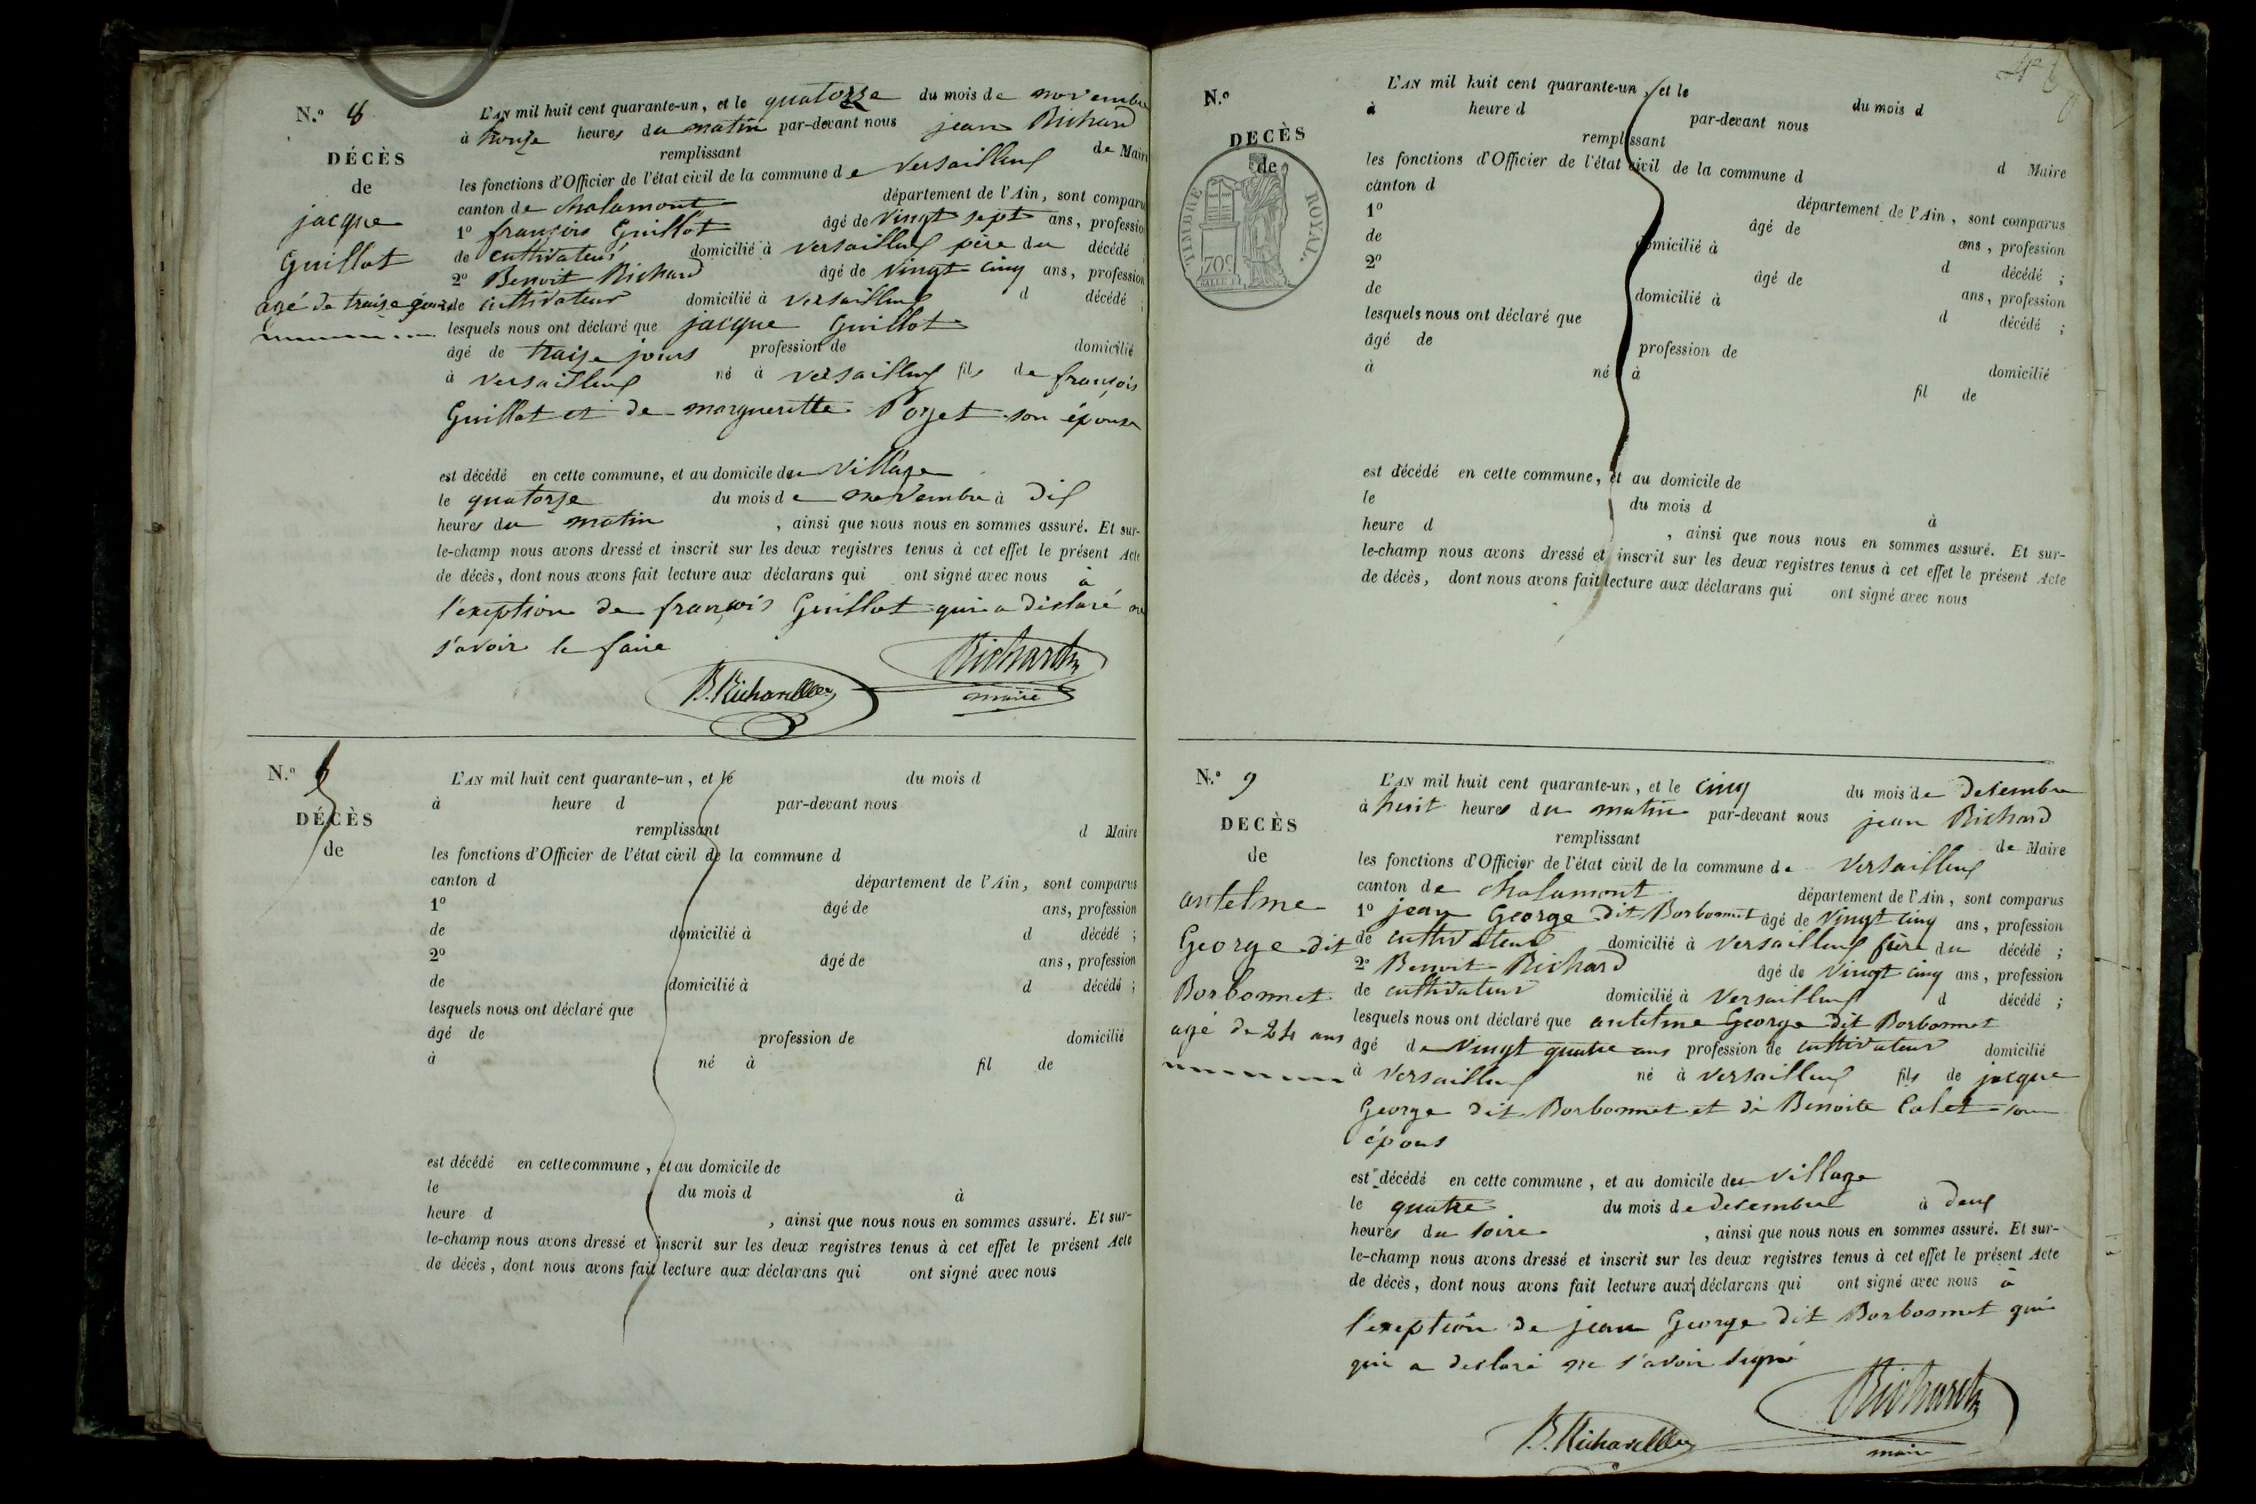 N.º 8
DÉCÈS
de
jacque
Guillot
agé de traise jours
L'AN mil huit cent quarante-un, et le quatorze du mois de novembre
à honze heures du matin par-devant nous jean Richard
remplissant de Maire
les fonctions d'Officier de l'état civil de la commune de Versailleux
canton de chalamont département de l'Ain, sont comparus
1º françois Guillot âgé de vingt sept ans, profession
de cultivateur domicilié à versailleux père du décédé
2º Benoit Richard âgé de vingt cinq ans, profession
de cultivateur domicilié à versailleux d décédé ;
lesquels nous ont déclaré que jacque Guillot
âgé de traise jours profession de domicilié
à versailleux né à versailleux fils de françois
Guillot et de margueritte Poyet son épouse
est décédé en cette commune, et au domicile de village
le quatorze du mois de novembre à dix
heures du matin , ainsi que nous nous en sommes assuré. Et sur-
le-champ nous avons dressé et inscrit sur les deux registres tenus à cet effet le présent Acte
de décès, dont nous avons fait lecture aux déclarans qui ont signé avec nous à
l'exeption de françois Guillot qui a déclaré ne
s'avoir le faire
B. Richard Richard
maire
N.º
DÉCÈS
de
L'AN mil huit cent quarante-un, et le du mois d
à heure d par-devant nous
remplissant d Maire
les fonctions d'Officier de l'état civil de la commune d
canton d département de l'Ain, sont comparus
1º âgé de ans, profession
de domicilié à d décédé ;
2º âgé de ans, profession
de domicilié à d décédé ;
lesquels nous ont déclaré que
âgé de profession de domicilié
à né à fil de
est décédé en cette commune, et au domicile de
le du mois d à
heure d , ainsi que nous nous en sommes assuré. Et sur-
le-champ nous avons dressé et inscrit sur les deux registres tenus à cet effet le présent Acte
de décès, dont nous avons fait lecture aux déclarans qui ont signé avec nous
N.º
DECÈS
de
TIMBRE ROYAL.
70c
L'AN mil huit cent quarante-un, et le du mois d
à heure d par-devant nous
remplissant d Maire
les fonctions d'Officier de l'état civil de la commune d
canton d département de l'Ain, sont comparus
1º âgé de ans, profession
de domicilié à d décédé ;
2º âgé de ans, profession
de domicilié à d décédé ;
lesquels nous ont déclaré que
âgé de profession de domicilié
à né à fil de
est décédé en cette commune, et au domicile de
le du mois d à
heure d , ainsi que nous nous en sommes assuré. Et sur-
le-champ nous avons dressé et inscrit sur les deux registres tenus à cet effet le présent Acte
de décès, dont nous avons fait lecture aux déclarans qui ont signé avec nous
N.º 9
DECÈS
de
antelme
George dit
Borbonnet
agé de 24 ans
L'AN mil huit cent quarante-un, et le cinq du mois de desembre
à huit heures du matin par-devant nous jean Richard
remplissant de Maire
les fonctions d'Officier de l'état civil de la commune de Versailleux
canton de chalamont département de l'Ain, sont comparus
1º jean George dit Borbonnet âgé de vingt cinq ans, profession
de cultivateur domicilié à versailleux frère du décédé ;
2º Benoit Richard âgé de vingt cinq ans, profession
de cultivateur domicilié à Versailleux d décédé ;
lesquels nous ont déclaré que antelme George dit Borbonnet
âgé de vingt quatre ans profession de cultivateur domicilié
à versailleux né à versailleux fils de jacque
George dit Borbonnet et de Benoite Colet son
épous
est décédé en cette commune, et au domicile du village
le quatre du mois de desembre à deux
heures du soire , ainsi que nous nous en sommes assuré. Et sur-
le-champ nous avons dressé et inscrit sur les deux registres tenus à cet effet le présent Acte
de décès, dont nous avons fait lecture aux déclarans qui ont signé avec nous à
l'exeption de jean George dit Borbonnet qui
qui a declaré ne s'avoir signé
B. Richard Richard
maire